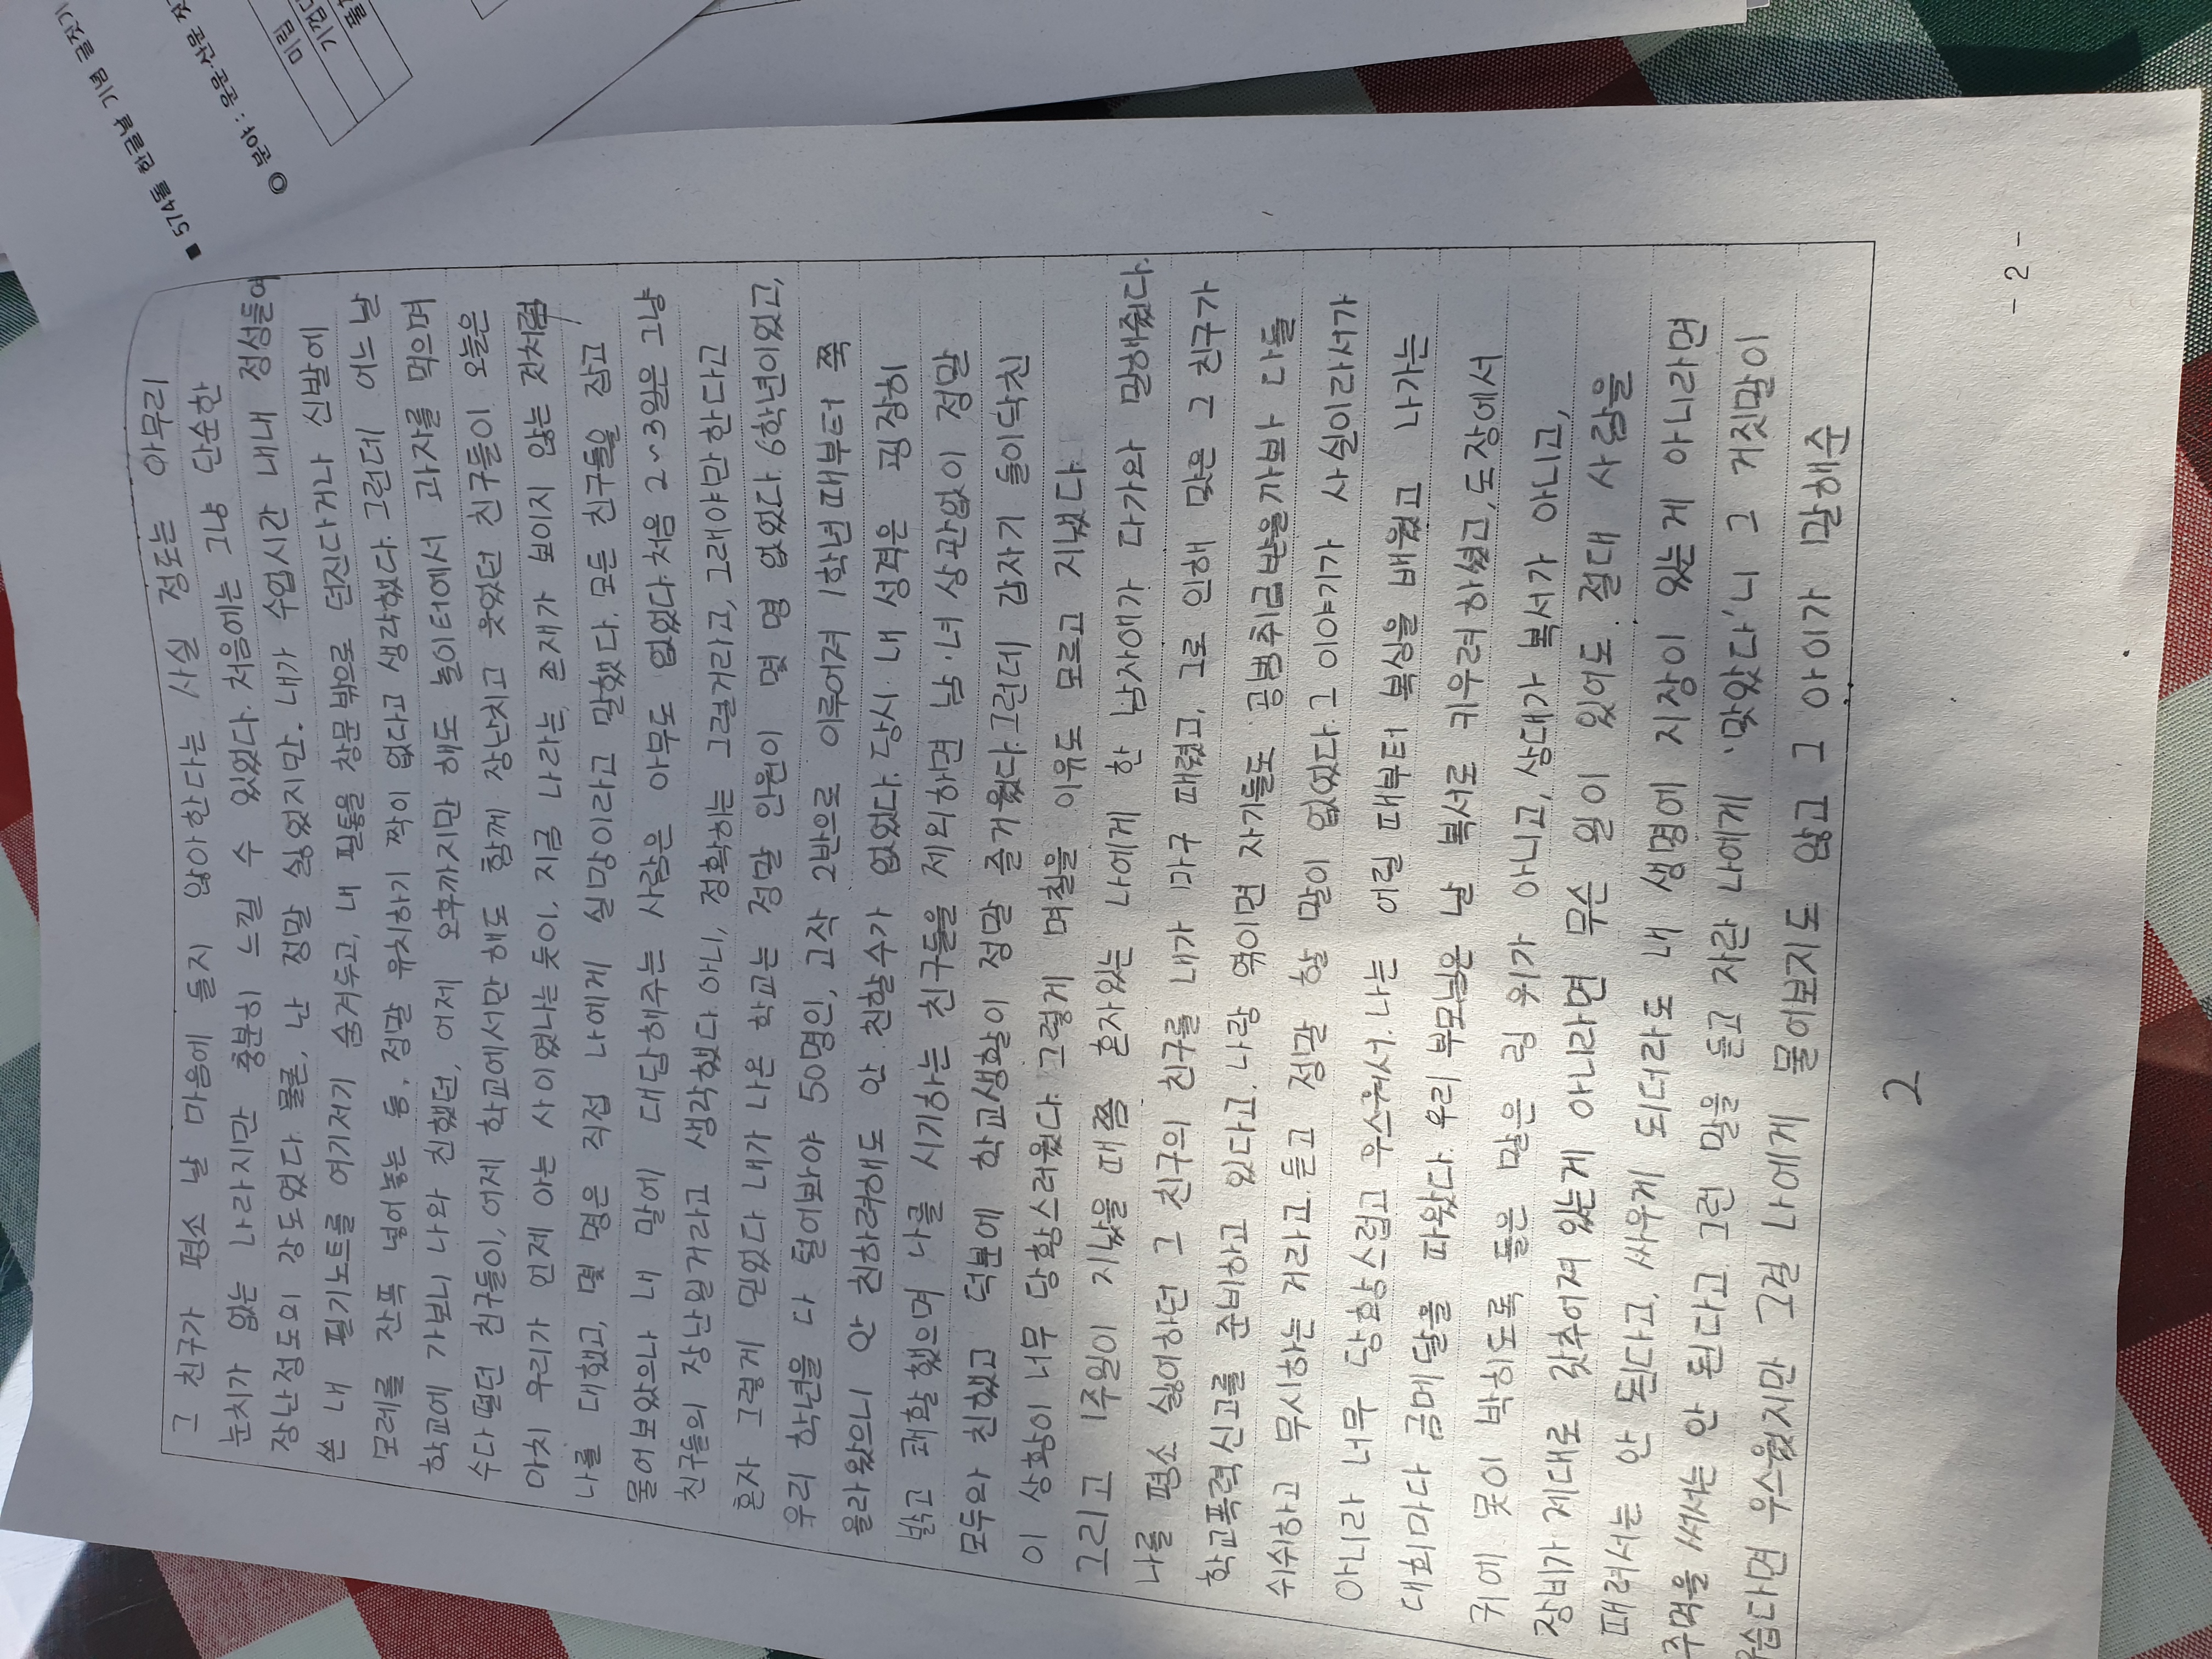 ■ 574돌 한글날 기념 글짓기
◎ 분야 : 운문·산문
미림
그 친구가 평소 날 마음에 들지 않아한다는 사실 정도는 아무리
눈치가 없는 나라지만 충분히 느낄 수 있었다. 처음에는 그냥 단순한
장난정도의 강도였다. 물론, 난 정말 싫었지만. 내가 수업시간 내내 정성들여
쓴 내 필기노트를 여기저기 숨겨두고, 내 필통을 창문 밖으로 던진다거나 신발에
모레를 잔뜩 넣어놓는 등, 정말 유치하기 짝이 없다고 생각했다. 그런데 어느 날
학교에 가보니 나와 친했던, 어제 오후까지만 해도 놀이터에서 과자를 먹으며
수다 떨던 친구들이, 어제 학교에서만 해도 함께 장난치고 웃었던 친구들이 오늘은
마치 우리가 언제 아는 사이였냐는 듯이, 지금 나라는 존재가 보이지 않는 것처럼
나를 대했고, 몇 명은 직접 나에게 실망이라고 말했다. 모든 친구들을 잡고
물어보았으나 내 말에 대답해주는 사람은 아무도 없었다. 처음 2~3일은 그냥
친구들의 장난일거라고 생각했다. 아니, 정확하는 그럴거라고, 그래야만 한다고
혼자 그렇게 믿었다. 내가 나온 학교는 정말 인원이 몇 명 없었다. 6학년이었고,
우리 학년을 다 털어봐야 50명인, 고작 2반으로 이루어져 1학년 때부터 쭉
올라왔으니 안 친하려해도 안 친할수가 없었다. 당시 내 성격은 굉장히
밝고 쾌활했으며 나를 시기하는 친구들을 제외하면 남·녀 상관없이 정말
모두와 친했고 덕분에 학교생활이 정말 즐거웠다. 그런데 갑자기 들이닥친
이 상황이 너무 당황스러웠다. 그렇게 며칠을 이유도 모르고 지냈다.
그리고 1주일이 지났을 때쯤 혼자있는 나에게 한 남자애가 다가와 말해줬다.
나를 평소 싫어하던 그 친구의 친구를 내가 마구 때렸고, 그로 인해 맞은 그 친구가
학교폭력신고를 준비하고 있다고. 나랑 엮이면 자기들도 공범취급받을까봐 다들
쉬쉬하고 무시하는 거라고. 듣고 정말 할 말이 없었다. 그 이야기가 사실이라서가
아니라 너무 당황스럽고 우스워서. 나는 어릴 때부터 복싱을 배웠고 나가는
대회마다 금메달을 따왔다. 우리 부모님은 날 복서로 키우려 하셨고, 도장에서
귀에 못이 박히도록 들은 말은 링 위가 아니고, 상대가 복서가 아니고,
장비가 제대로 갖추어져 있는게 아니라면 무슨 일이 있어도 절대 사람을
때려서는 안 된다고, 싸우게 되더라도 내 생명에 지장이 있는게 아니라면
주먹을 써서는 안 된다고. 그런 말을 듣고 자란 나에게 '맞았다'니 그 거짓말이
우습다면 우스웠지만 그걸 나에게 물어보지도 않고 그 아이가 말해준
2
- 2 -